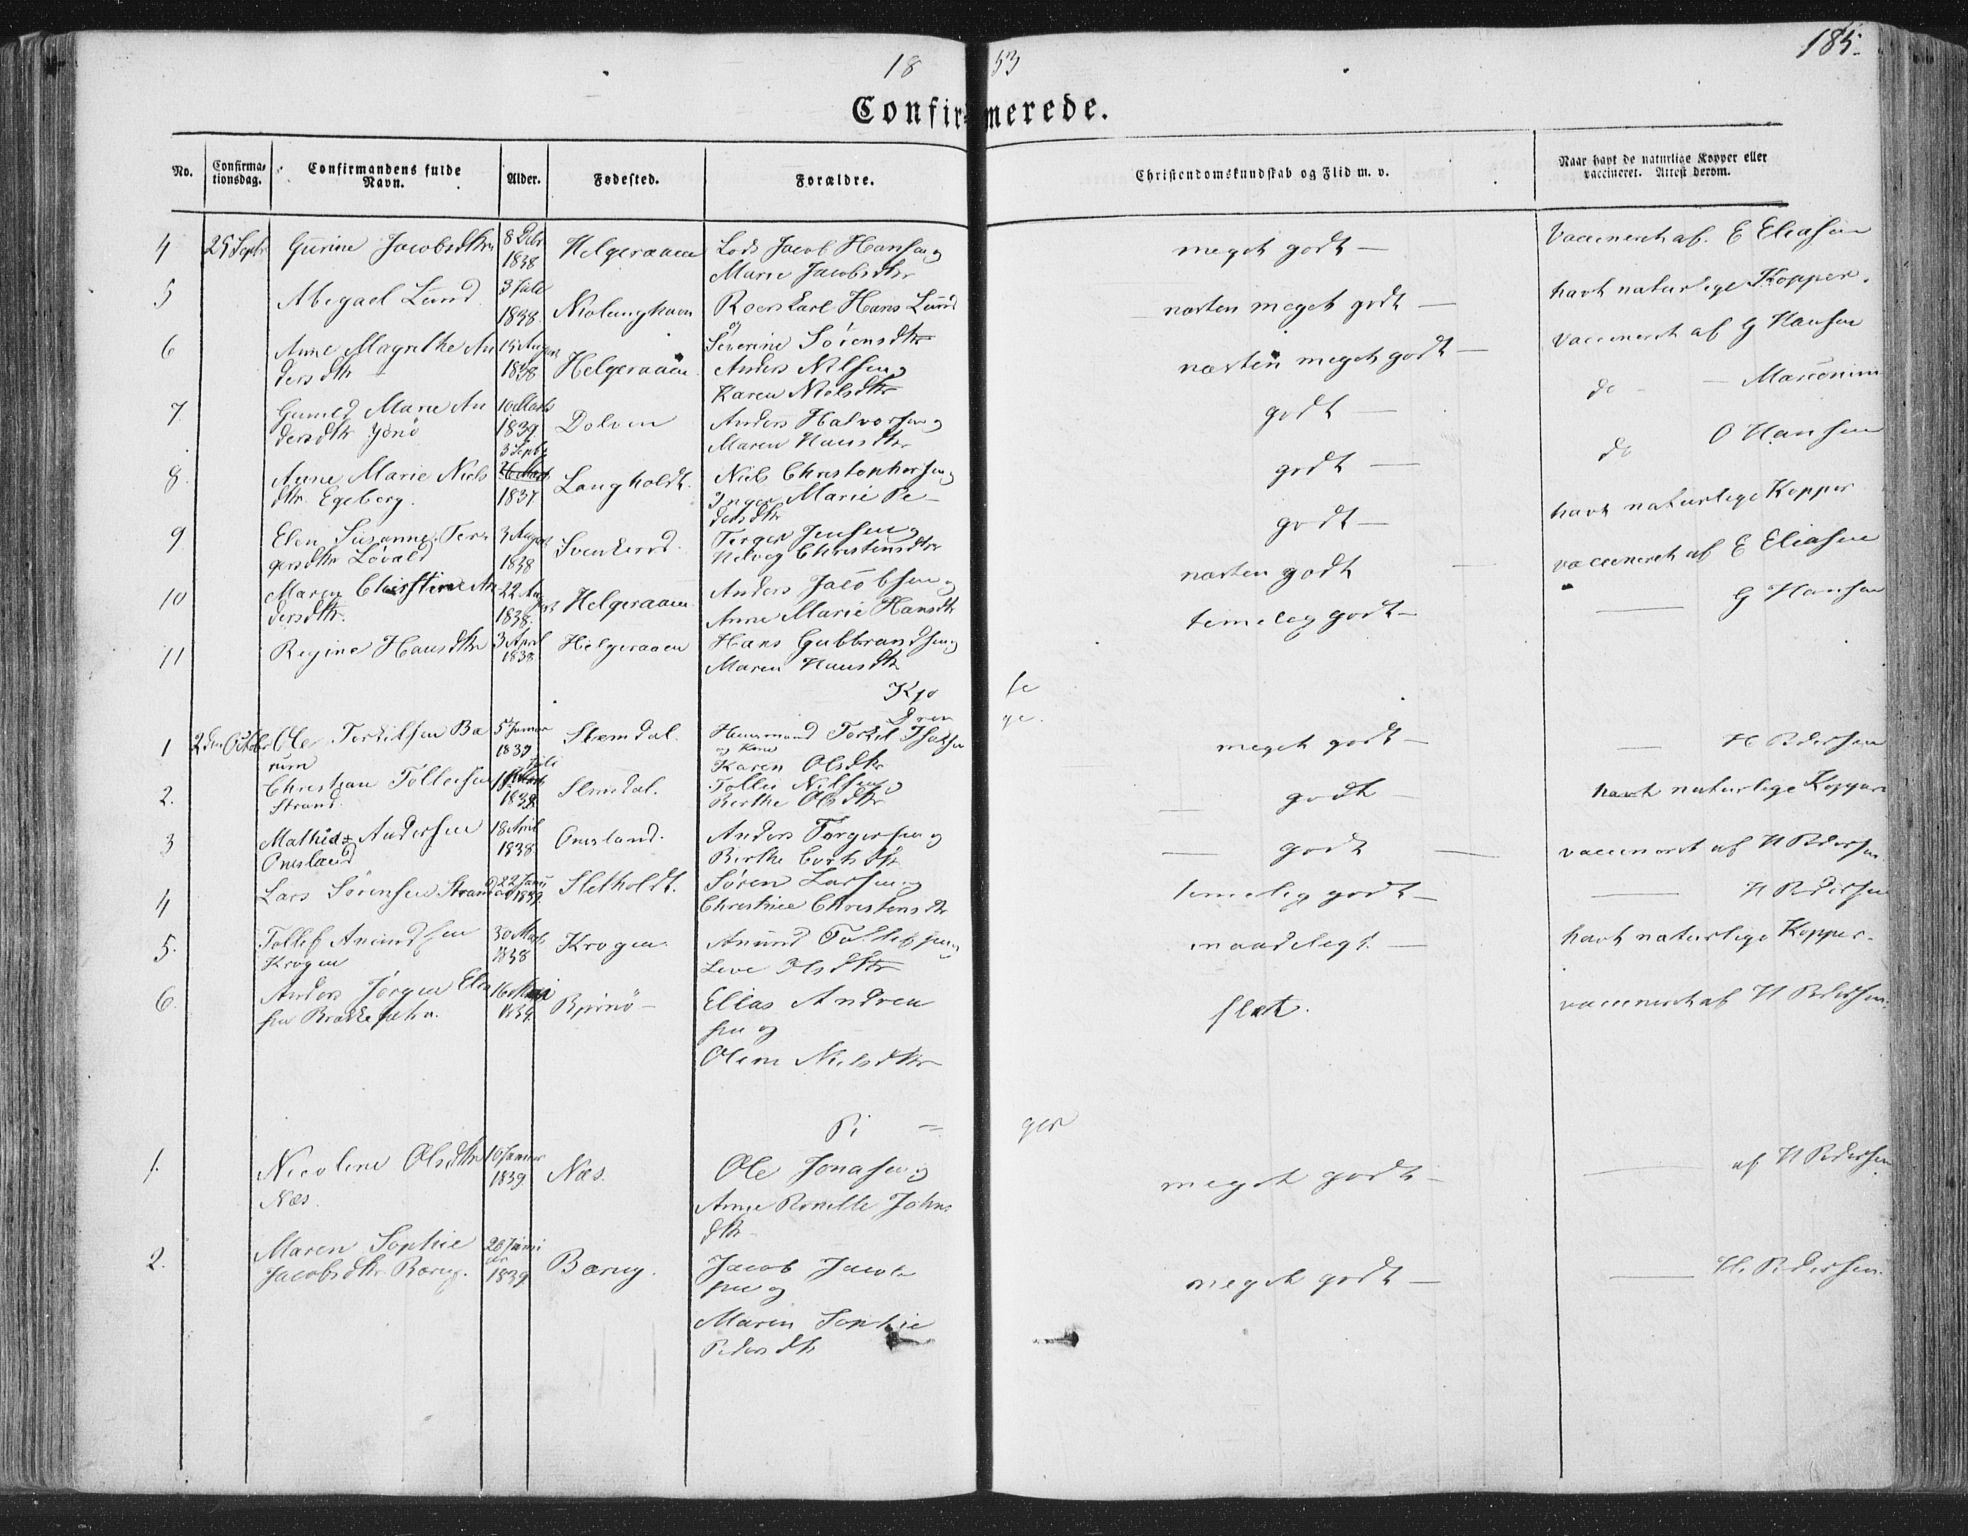 185.
18 53
Confirmerede.
No. Confirmationsdag. Confirmandens fulde Navn. Alder. Fødested. Forældre. Christendomskundskab og Flid m. v. Naar havt de naturlige Kopper eller vaccineret. Attest derom.
4 25 Septr Gurine Jacobsdtr 8 Debr 1838 Helgeraaen Lods Jacob Hansen og Marie Jacobsdtr meget godt — Vaccineret af E Eliasen
5 Abigael Lund 3 Juli 1838 Hans Lund og Severine Sørensdtr næsten meget godt — havt naturlige Kopper.
6 Anne Magrethe Andersdtr 15 August 1838 Helgeraaen Anders Nilsen og Karen Nielsdtr næsten meget godt — vaccineret af G Hansen
7. Gunild Marie Andersdtr 10 Marts 1839 Dolven Anders Halvorsen og Maren Hansdtr godt — do —
8. Anne Marie Nielsdtr. Egeberg. 3 Septb 1837 Langholdt. Niels Christophersen og Inger Marie Pedersdtr godt — do O Hansen
9 Elen Susanne Tergersdtr Løvald 3 August 1838 Terger Jensen og Helvig Christensdtr godt — havt naturlige Kopper
10 Maren Christine Andersdtr. 22 August 1838. Helgeraaen Anders Jacobsen og Anne Marie Hansdtr næsten godt — vaccineret af E Eliasen
11 Regine Hansdtr 3 April 1838 Helgeraaen Hans Gulbrandsen og Maren Hansdtr temelig godt — — G Hansen
1 2den October Ole Terkilsen Barum 5 Januar 1839 Slemdal. Huusmand Torkil Isaksen og Kone Karen Olsdtr meget godt — — H Pedersen
2. Christian Tollefsen Strand. Juli 1838. Slemdal. Tollef Nilsen og Berthe Olsdtr — godt — havt naturlige Kopper
3 Mathias Andersen Omsland 18 April 1838 Omsland. Anders Torgersen og Birthe — godt — vaccineret af H Pedersen
4 Lars Sørensen Strand 22 Januar 1839 Sletholdt. Søren Larsen og Christine Christensdtr temelig godt — — H Pedersen
5. Tollef Amundsen Krogen 30 Marts 1838 Krogen Amund Tollefsen og Live Olsdtr maadeligt. — havt naturlige Kopper.
6. Anders Jørgen Eliasen 16 Mai Bjønnø — Elias Andreasen og Olene Nielsdtr slet. vaccineret af H Pedersen.
Pi = ger
1. Nicoline Olsdtr Næs. 10 Januar 1839 Næs. Ole Jonasen og Anne Pernille Johnsdtr meget godt — — af H Pedersen
2. Maren Sophie Jacobsdtr Barug. 28 Januar 1839 Barug. Jacob Jacobsen og Maren Sophie Pedersdtr meget godt — — H. Pedersen.